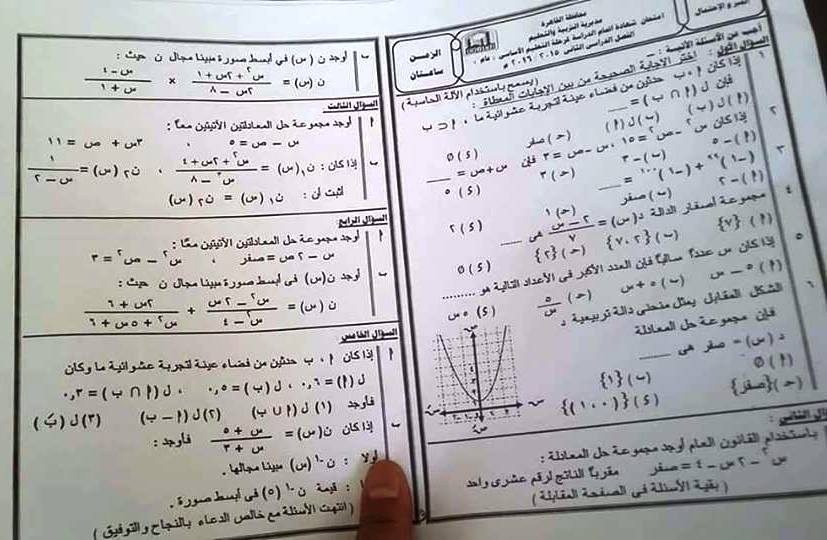 محافظة القاهرة
مديرية التربية والتعليم
امتحان شهادة إتمام الدراسة لمرحلة التعليم الأساسى ، عام :
الفصل الدراسى الثانى ٢٠١٥ / ٢٠١٦ م
الجبر والاحتمال
الزمن
ساعتان
أجب عن الأسئلة الآتية : –
(يسمح باستخدام الآلة الحاسبة)
السؤال الأول : اختر الإجابة الصحيحة من بين الإجابات المعطاة :
١ إذا كان أ ، ب حدثين من فضاء عينة لتجربة عشوائية ما ، أ ⊂ ب
فإن ل ( أ ∩ ب ) = ......
( أ ) ل ( ب ) (ب) ل ( أ ) (حـ) صفر (ء) Ø
٢ إذا كان س² – ص² = ١٥ ، س – ص = ٣ فإن س + ص = ......
( أ ) – ٥ (ب) – ٣ (حـ) ٣ (ء) ٥
٣ (– ١)⁹⁹ + (– ١)¹⁰⁰ = ......
( أ ) – ٢ (ب) صفر (حـ) ١ (ء) ٢
٤ مجموعة أصفار الدالة د(س) = ٢ – س / ٧ هى ......
( أ ) {٧} (ب) {٢ ، ٧} (حـ) {٢} (ء) Ø
٥ إذا كان س عدداً سالباً فإن العدد الأكبر فى الأعداد التالية هو ..........
( أ ) ٥ – س (ب) ٥ + س (حـ) ٥ / س (ء) ٥ س
٦ الشكل المقابل يمثل منحنى دالة تربيعية د
فإن مجموعة حل المعادلة
د (س) = صفر هى ......
( أ ) Ø (ب) {١}
(حـ) {صفر} (ء) {(٠ ، ١)}
السؤال الثانى :
باستخدام القانون العام أوجد مجموعة حل المعادلة :
س² – ٢ س – ٤ = صفر مقرباً الناتج لرقم عشرى واحد
( بقية الأسئلة فى الصفحة المقابلة )
ب أوجد ن ( س ) فى أبسط صورة مبينا مجال ن حيث :
ن (س) = س² + ٢س + ١ / ٢س – ٨ × س – ٤ / س + ١
السؤال الثالث
أ أوجد مجموعة حل المعادلتين الآتيتين معاً :
س – ص = ٥ ، ٣س + ص = ١١
ب إذا كان : ن₁(س) = س² + ٢س + ٤ / س³ – ٨ ، ن₂(س) = ١ / س – ٢
أثبت أن : ن₁(س) = ن₂(س)
السؤال الرابع :
أ أوجد مجموعة حل المعادلتين الآتيتين معاً :
س – ٢ ص = صفر ، س² – ص² = ٣
ب أوجد ن(س) فى أبسط صورة مبينا مجال ن حيث :
ن (س) = س² – ٢ س / س² – ٤ + ٢س + ٦ / س² + ٥س + ٦
السؤال الخامس
أ إذا كان أ ، ب حدثين من فضاء عينة لتجربة عشوائية ما وكان
ل (أ) = ٠,٦ ، ل (ب) = ٠,٥ ، ل ( أ ∩ ب ) = ٠,٣
فأوجد (١) ل ( أ ∪ ب ) (٢) ل ( أ – ب ) (٣) ل ( بَ )
ب إذا كان ن(س) = س + ٥ / س + ٣ فأوجد :
أولا : ن⁻¹ (س) مبينا مجالها .
: قيمة ن⁻¹ (٥) فى أبسط صورة .
( انتهت الأسئلة مع خالص الدعاء بالنجاح والتوفيق )